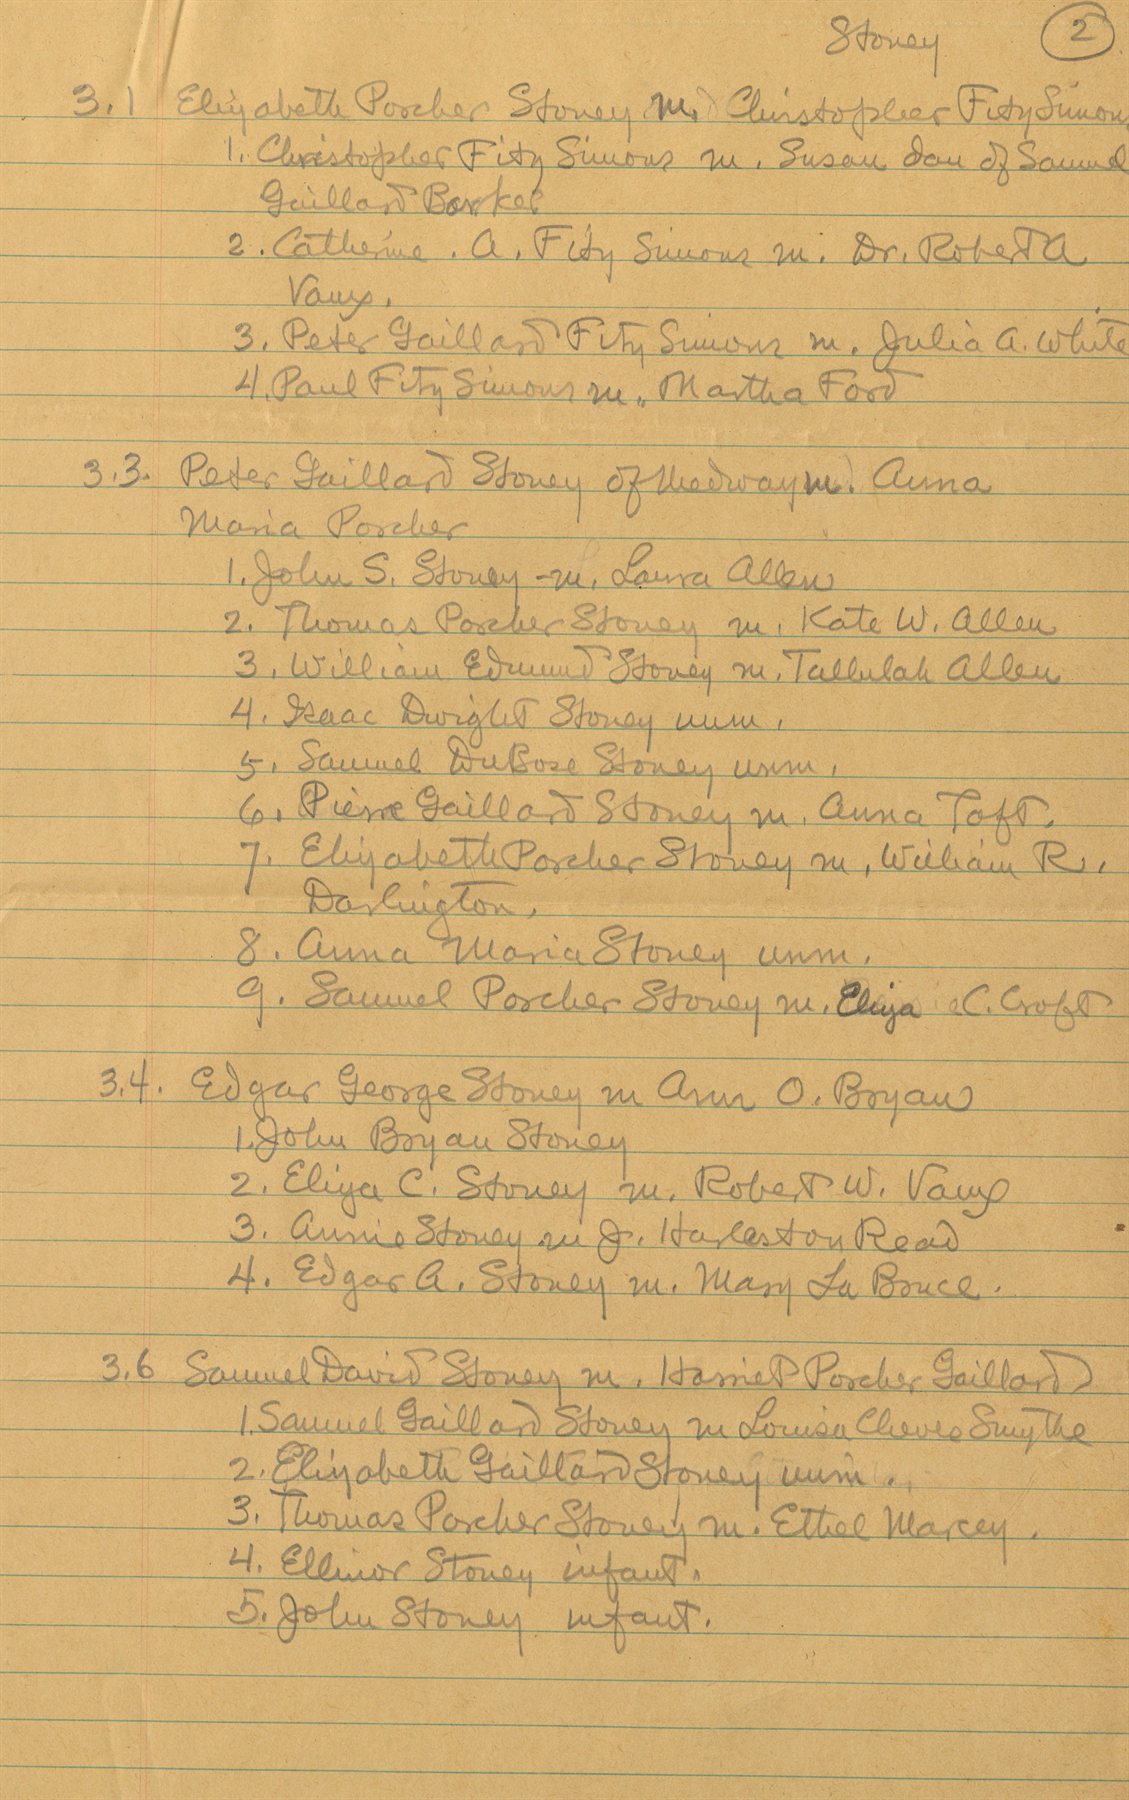 Stoney 2
3.1 Elizabeth Porcher Stoney m. Christopher FitzSimons
1. Christopher Fitz Simons m. Susan dau of Samuel
Gaillard Barker
2. Catherine. A. Fitz Simons m. Dr. Robert A
Vaux.
3. Peter Gaillard Fitz Simons m. Julia A. White
4. Paul Fitz Simons m. Martha Ford
3.3. Peter Gaillard Stoney of Medway m. Anna
Maria Porcher
1. John S. Stoney - m. Laura Allen
2. Thomas Porcher Stoney m. Kate W. Allen
3. William Edmund Stoney m. Tallulah Allen
4. Isaac Dwight Stoney unm.
5. Samuel DuBose Stoney unm.
6. Pierre Gaillard Stoney m. Anna Toft.
7. Elizabeth Porcher Stoney m. William R.
Darlington.
8. Anna Maria Stoney unm.
9. Samuel Porcher Stoney m. Eliza C. Croft
3.4. Edgar George Stoney m Ann O. Bryan
1. John Bryan Stoney
2. Eliza C. Stoney m. Robert W. Vaux
3. Annie Stoney m J. Harleston Read
4. Edgar A. Stoney m. Mary La Bruce.
3.6 Samuel David Stoney m. Harriet Porcher Gaillard
1. Samuel Gaillard Stoney m Louisa Cheves Smythe
2. Elizabeth Gaillard Stoney unm.
3. Thomas Porcher Stoney m. Ethel Marcey.
4. Ellinor Stoney infant.
5. John Stoney infant.